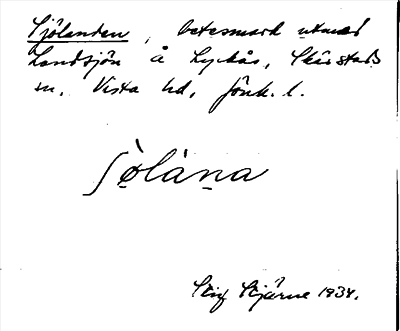 Sjölanden, betesmark utmed
Landsjön å Lyckås, Skärstads
sn. Vista hd, Jönk. l.
ʃö̀lána
Stig Stjärne 1934.